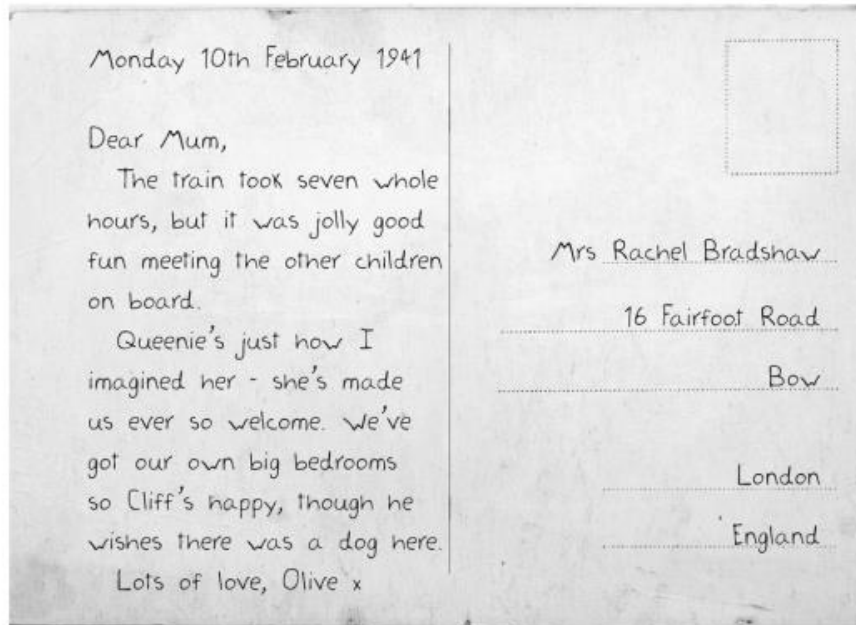 Monday 10th February 1941
Dear Mum,
The train took seven whole
hours, but it was jolly good
fun meeting the other children
on board.
Queenie's just how I
imagined her - she's made
us ever so welcome. We've
got our own big bedrooms
so Cliff's happy, though he
wishes there was a dog here.
Lots of love, Olive x
Mrs Rachel Bradshaw
16 Fairfoot Road
Bow
London
England